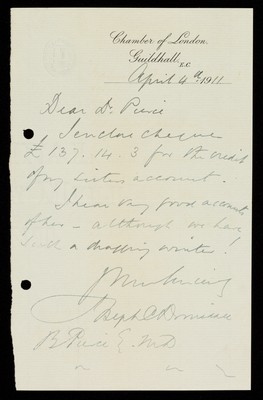 Chamber of London,
Guildhall,
E.C.
April 4th 1911
Dear Dr Pierce
I enclose cheque
£137.14.3 for the credit
of my sisters account.
I hear very good accounts
of her – although we have
such a dragging winter!
Yours sincerely
B Pierce E. MD